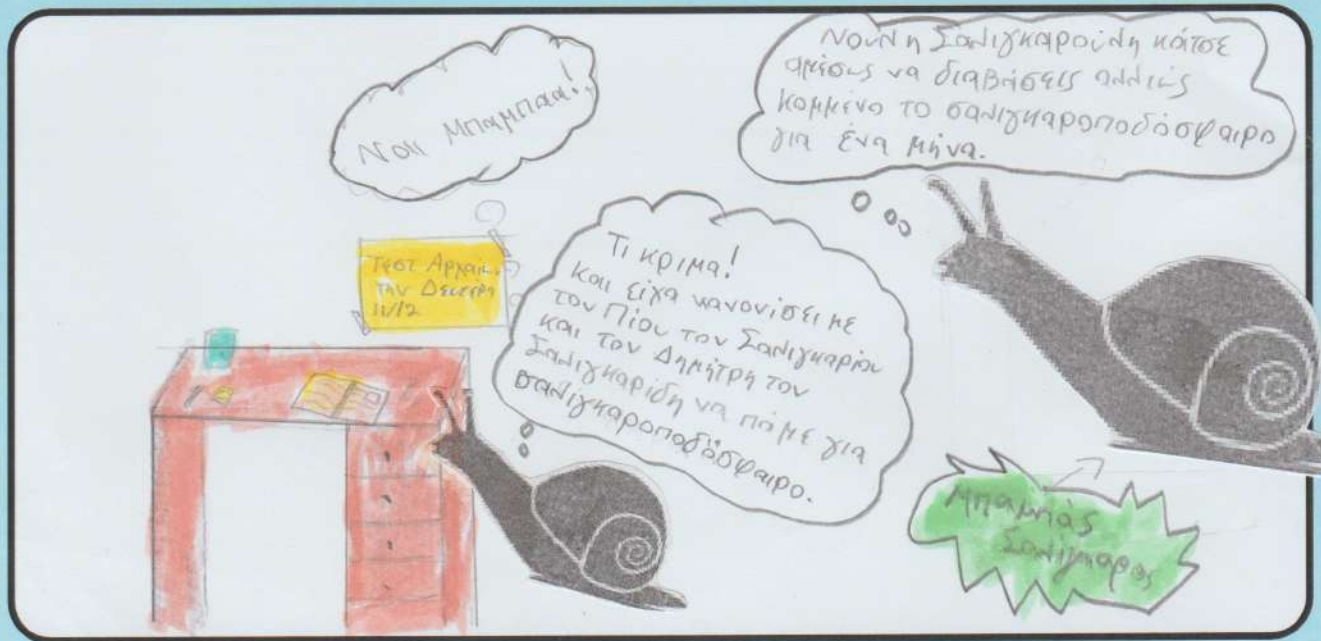 Νούλη Σαλιγκαρούλη κάτσε
αμέσως να διαβήσεις αλλιώς
κομμένο το σαλιγκαροποδόσφαιρο
για ένα μήνα.
Ναι Μπαμπαα!
Τεστ Αρχαία
την Δευτέρα
11/12
Τι κρίμα!
Και είχα κανονίσει με
τον Πίου τον Σαλιγκαρίου
και τον Δημήτρη τον
Σαλιγκαρίδη να πάμε για
σαλιγκαροποδόσφαιρο.
Μπαμπάς
Σαλίγκαρος